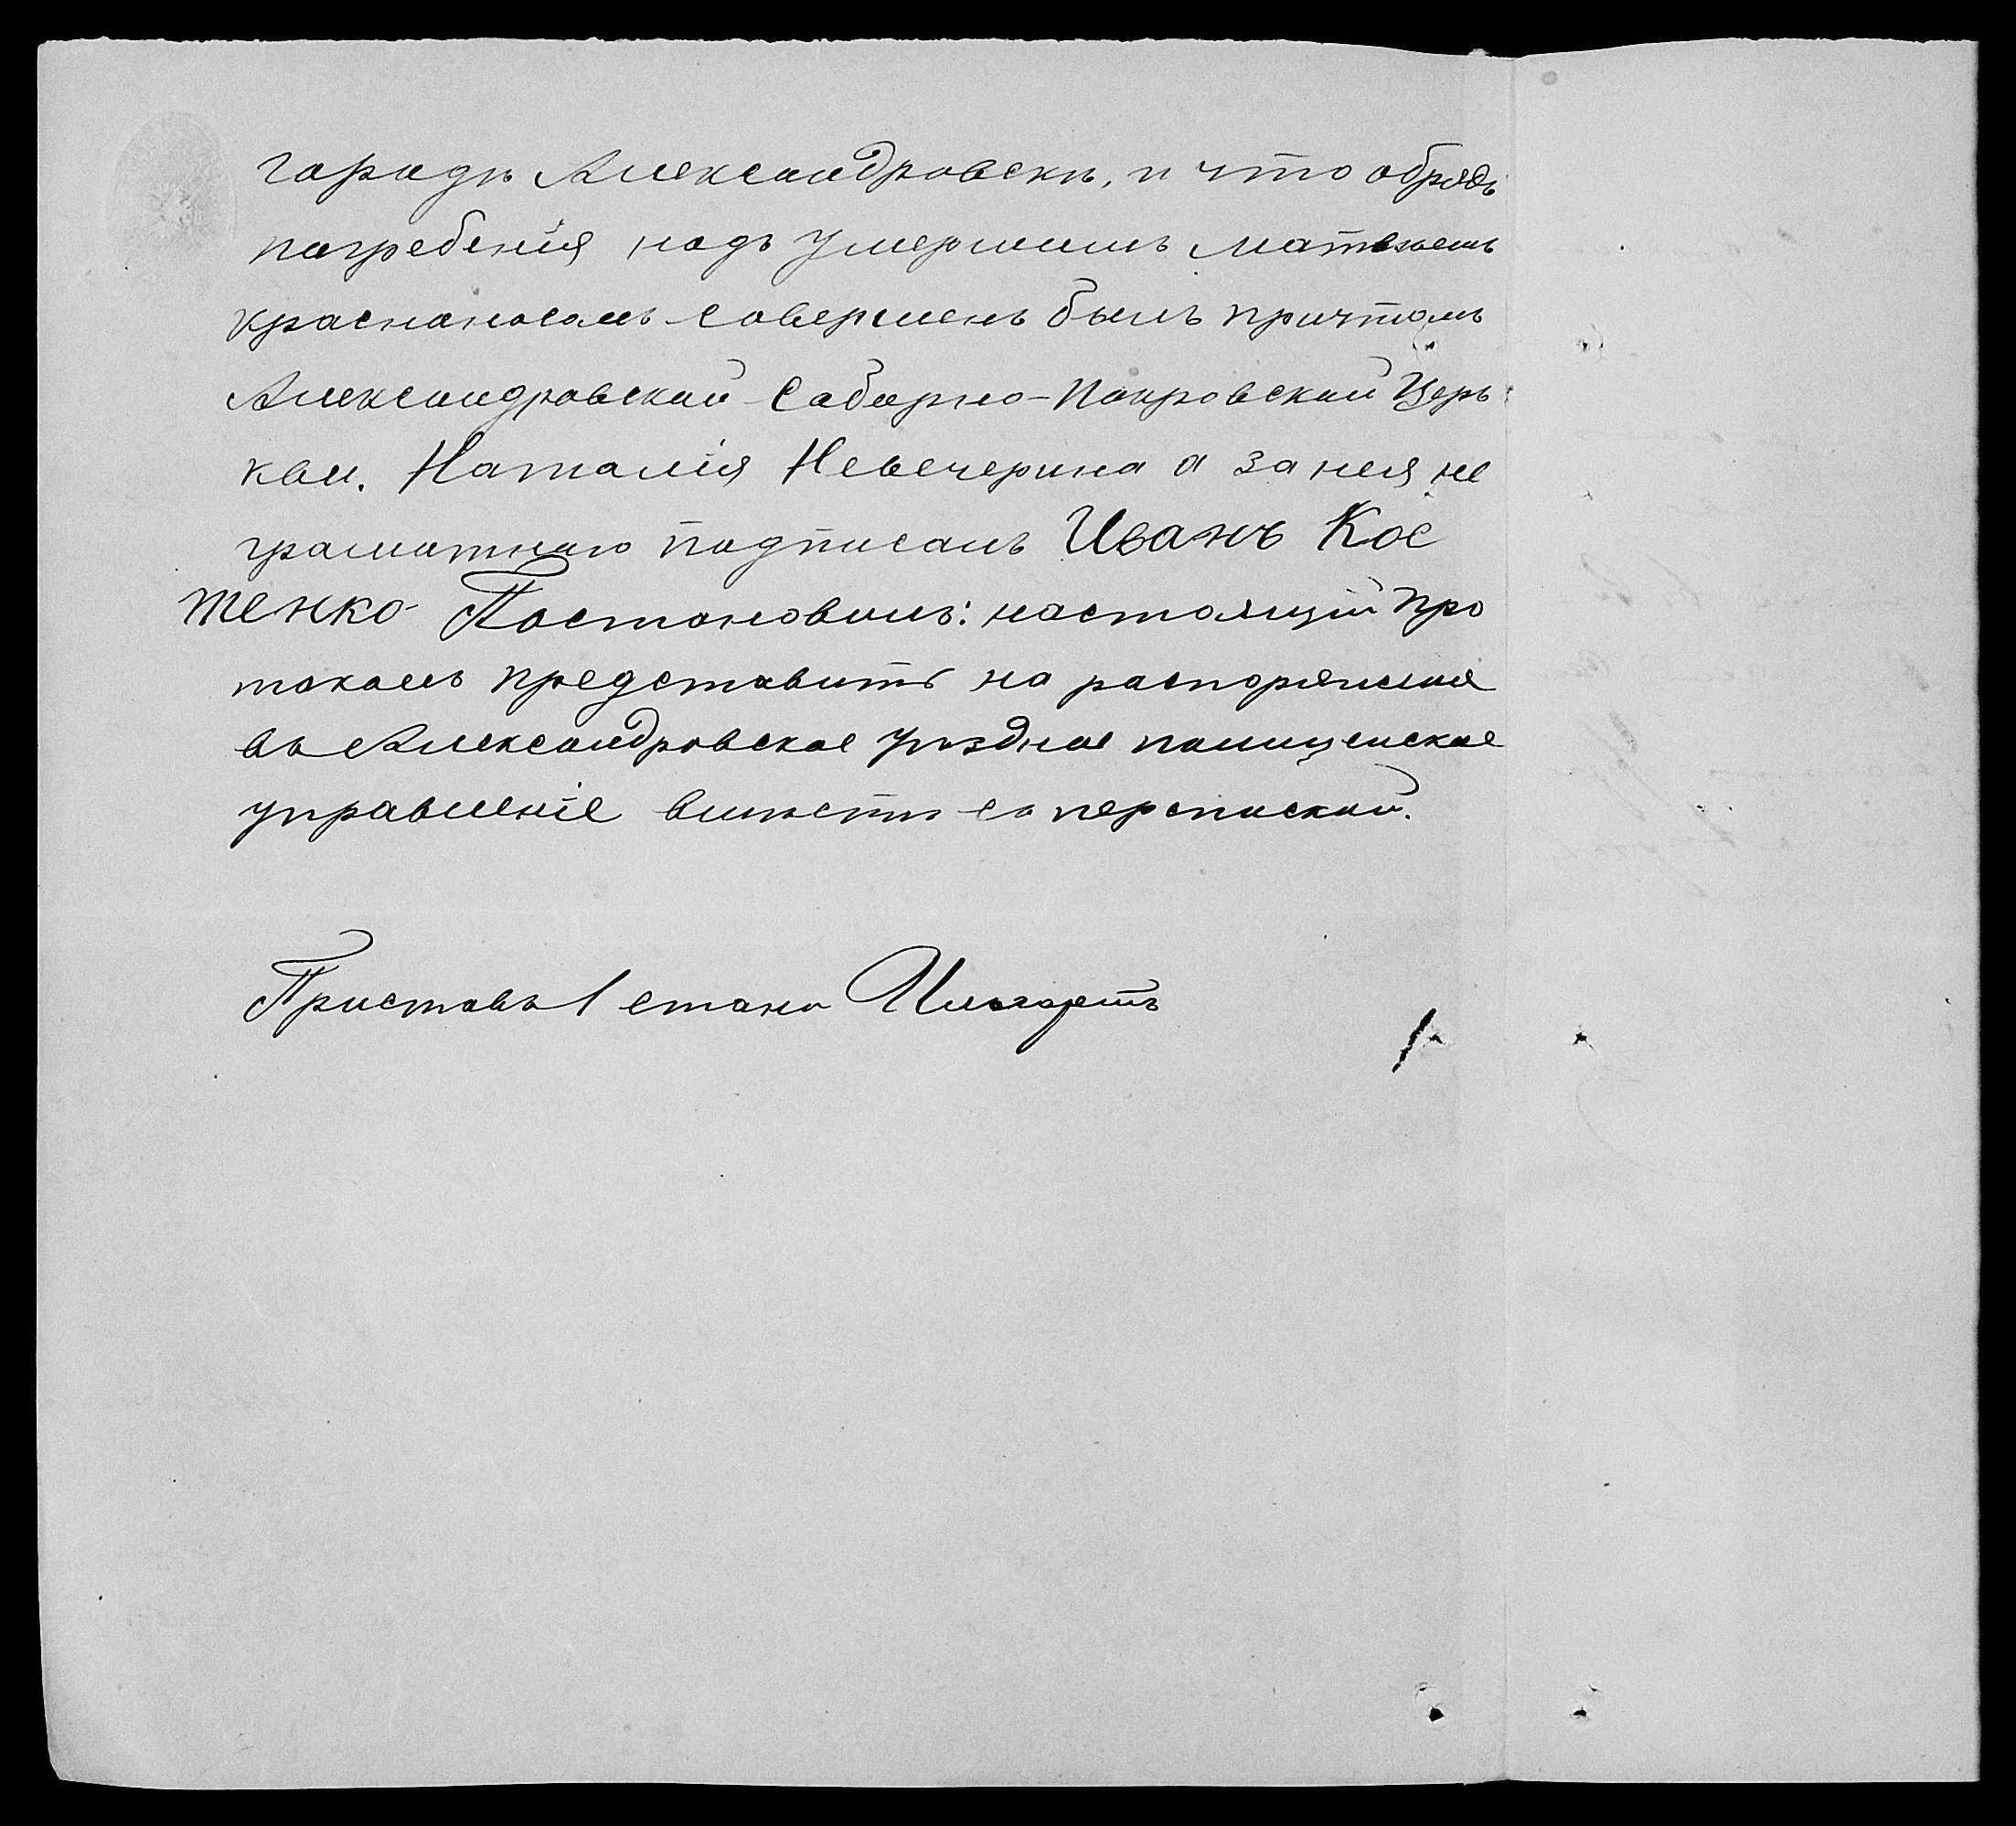 городѣ Александровскѣ, и что обрядъ
погребенія надъ умершимъ Матвѣемъ
Красноносомъ совершенъ былъ причтомъ
Александровской Соборно-Покровской Церь
кви. Наталія Невечерина а за нея не
грамотную подписалъ Иванъ Кос
тенко Постановилъ: настоящій про
токолъ представить на распоряженіе
въ Александровское уѣздное полицейское
управленіе вмѣстѣ съ перепиской.
Приставъ 1 стана